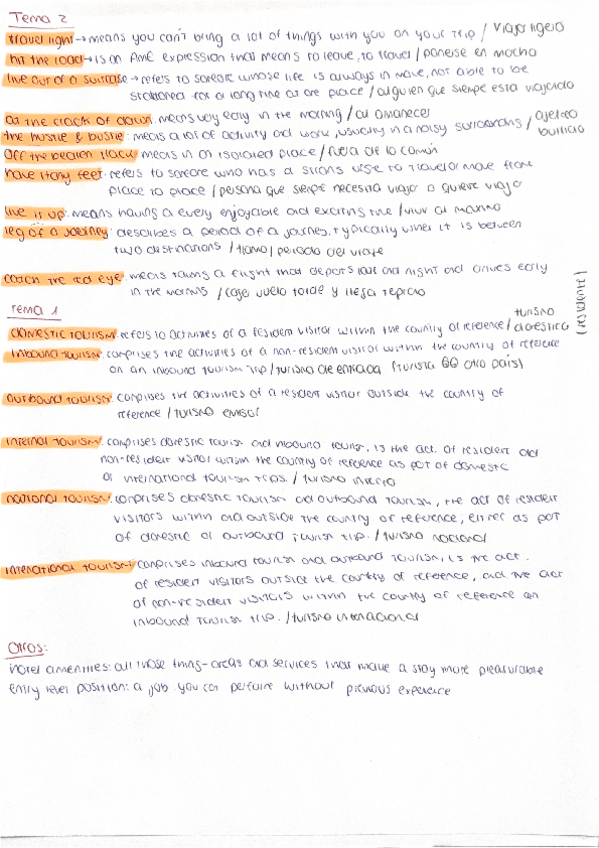 Tema 2
travel light → means you can't bring a lot of things with you on your trip / viajo ligero
hit the road → is an AmE expression that means to leave, to travel / ponerse en marcha
live out of a suitcase → refers to someone whose life is always in move, not able to be
stationed for a long time at one place / alguien que siempre esta viajando
at the crack of dawn: means very early in the morning / al amanecer
the hustle & bustle: means a lot of activity and work, usually in a noisy surroundings / ajetreo
bullicio
off the beaten track: means in an isolated place / fuera de lo común
have itchy feet: refers to someone who has a strong urge to travel or move from
place to place / persona que siempre necesita viajar o quiere viajar
live it up: means having a very enjoyable and exciting time / vivir al máximo
leg of a journey: describes a period of a journey, typically when it is between
two destinations / tramo / periodo del viaje
catch the red eye: means taking a flight that departs late at night and arrives early
in the morning / coger vuelo tarde y llega temprano
Tema 1
domestic tourism: refers to activities of a resident visitor within the country of reference / turismo
doméstico
inbound tourism: comprises the activities of a non-resident visitor within the country of reference
on an inbound tourism trip / turismo de entrada (turista otro país)
outbound tourism: comprises the activities of a resident visitor outside the country of
reference / turismo emisor
internal tourism: comprises domestic tourism and inbound tourism, is the act. of resident and
non-resident visitor within the country of reference as part of domestic
or international tourism trips. / turismo interno
national tourism: comprises domestic tourism and outbound tourism, the act of resident
visitors within and outside the country of reference, either as part
of domestic or outbound tourism trip. / turismo nacional
international tourism: comprises inbound tourism and outbound tourism, is the act.
of resident visitors outside the country of reference, and the act
of non-resident visitors within the country of reference on
inbound tourism trip. / turismo internacional
Otros:
hotel amenities: all those thing-areas and services that make a stay more pleasurable
entry level position: a job you can perform without previous experience